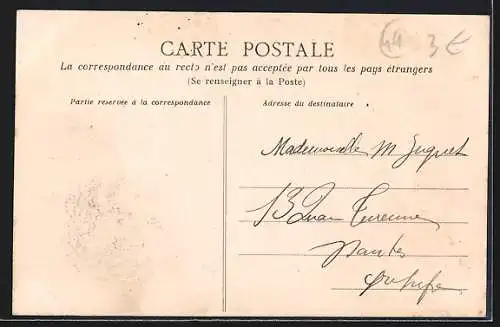 44 3€
CARTE POSTALE
La correspondance au recto n'est pas acceptée par tous les pays étrangers
(Se renseigner à la Poste)
Partie reservée à la correspondance
Adresse du destinataire
Mademoiselle M
13 Quai Turenne
Nantes